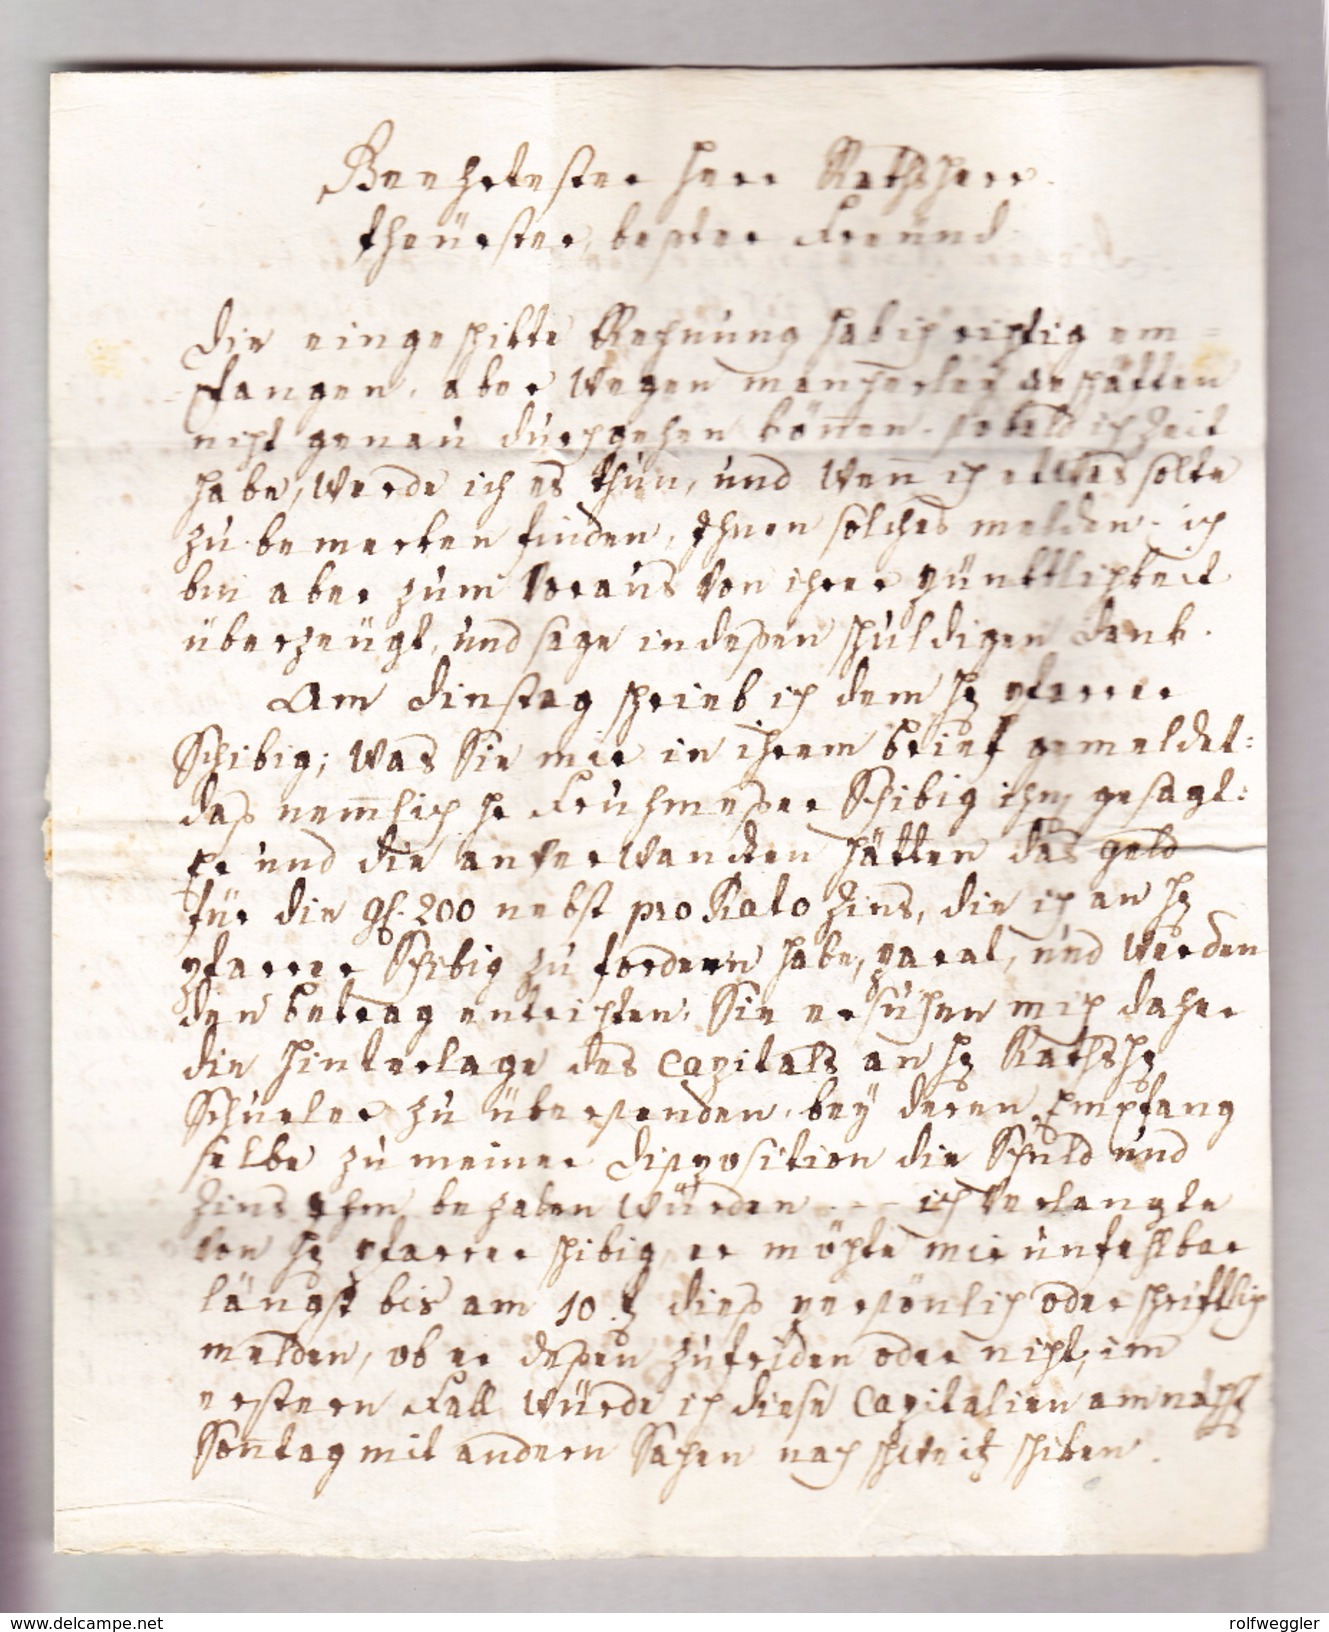 Beehrtester Herr Rathsherr.
theürster, bester Freund.
Die eingeschikte Rechnung hab ich richtig em=
pfangen, aber wegen mancherley geschäften
nicht genau durchgehen können. sobald ich Zeit
habe, werde ich es thun, und wen̄ ich etwas solte
zu bemerken finden, Ihnen solches melden. ich
bin aber zum Voraus von ihrer pünktlichkeit
überzeügt, und sage indeßen schuldigen Dank.
Am Dinstag schrieb ich dem Hr pfarrer
Schibig; was Sie mir in ihrem brief gemeldet:
daß nem̄lich Hr Fruhmeßer Schibig ihn gesagt:
Er und die anverwandten hätten das geld
für die gl. 200 nebst pro Rato Zins, die ich an Hr
pfarrer Schibig zu fordern habe, parat, und werden
den betrag entrichten. Sie ersuchen mich daher
die hinterlage des Capitals an Hr Rathshr
Schuler zu übersenden, bey deren Empfang
selbe zu meiner Disposition die Schuld und
Zins ihm bezalen würden. -- ich verlangte
von Hr pfarrer schibig, er möchte mir unfehlbar
längst bis am 10. dieß persönlich oder schriftlich
melden, ob er deßen zufriden oder nicht, im
erstern Fall würde ich diese Capitalien am nächst
Son̄tag mit andern Sachen nach schweitz schiken.
www.delcampe.net
rolfweggler